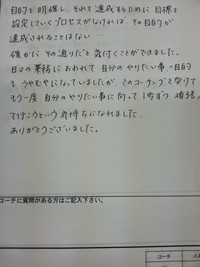 目的を明確し、それを達成するために目標を
設定していくプロセスがなければ、その目的が
達成されることはない…
確かにその通りだと気付くことができました。
日々の業務におわれて自分のやりたい事-目的
もうやむやになっていましたがこのコーチングを受けて
もう一度自分のやりたい事に向って1歩ずつ頑張っ
て行こうという気持ちになれました。
ありがとうございました。
コーチに質問がある方はご記入下さい。
コーチ